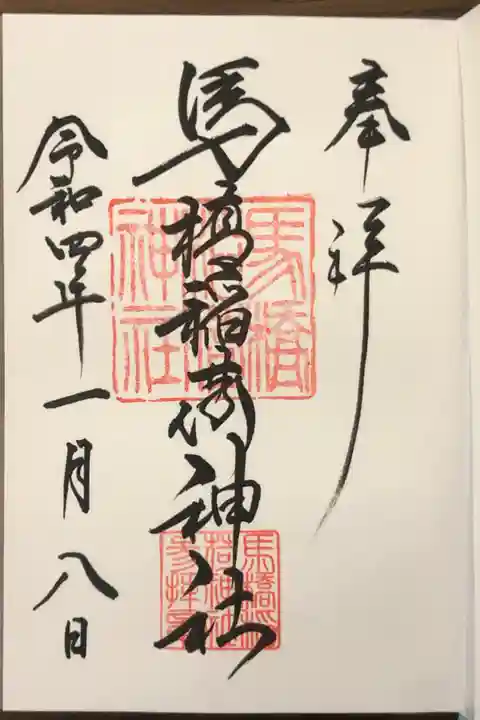 奉拝
馬橋稲荷神社
令和四年一月八日
馬橋稲荷神社